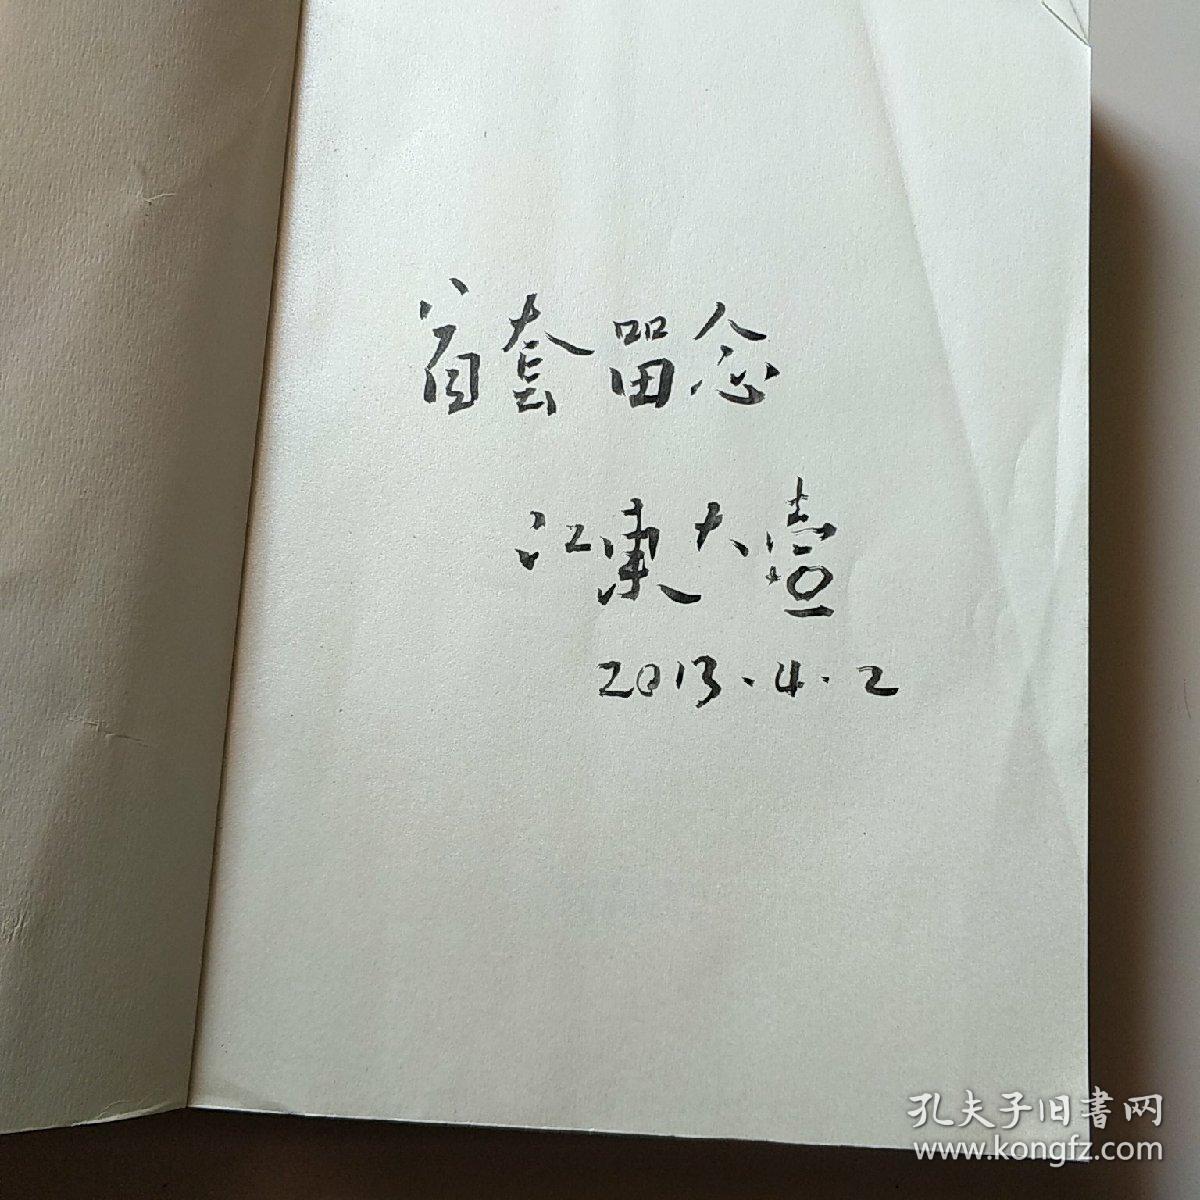 首套留念
江東大壹
2013.4.2
孔夫子旧書网
www.kongfz.com